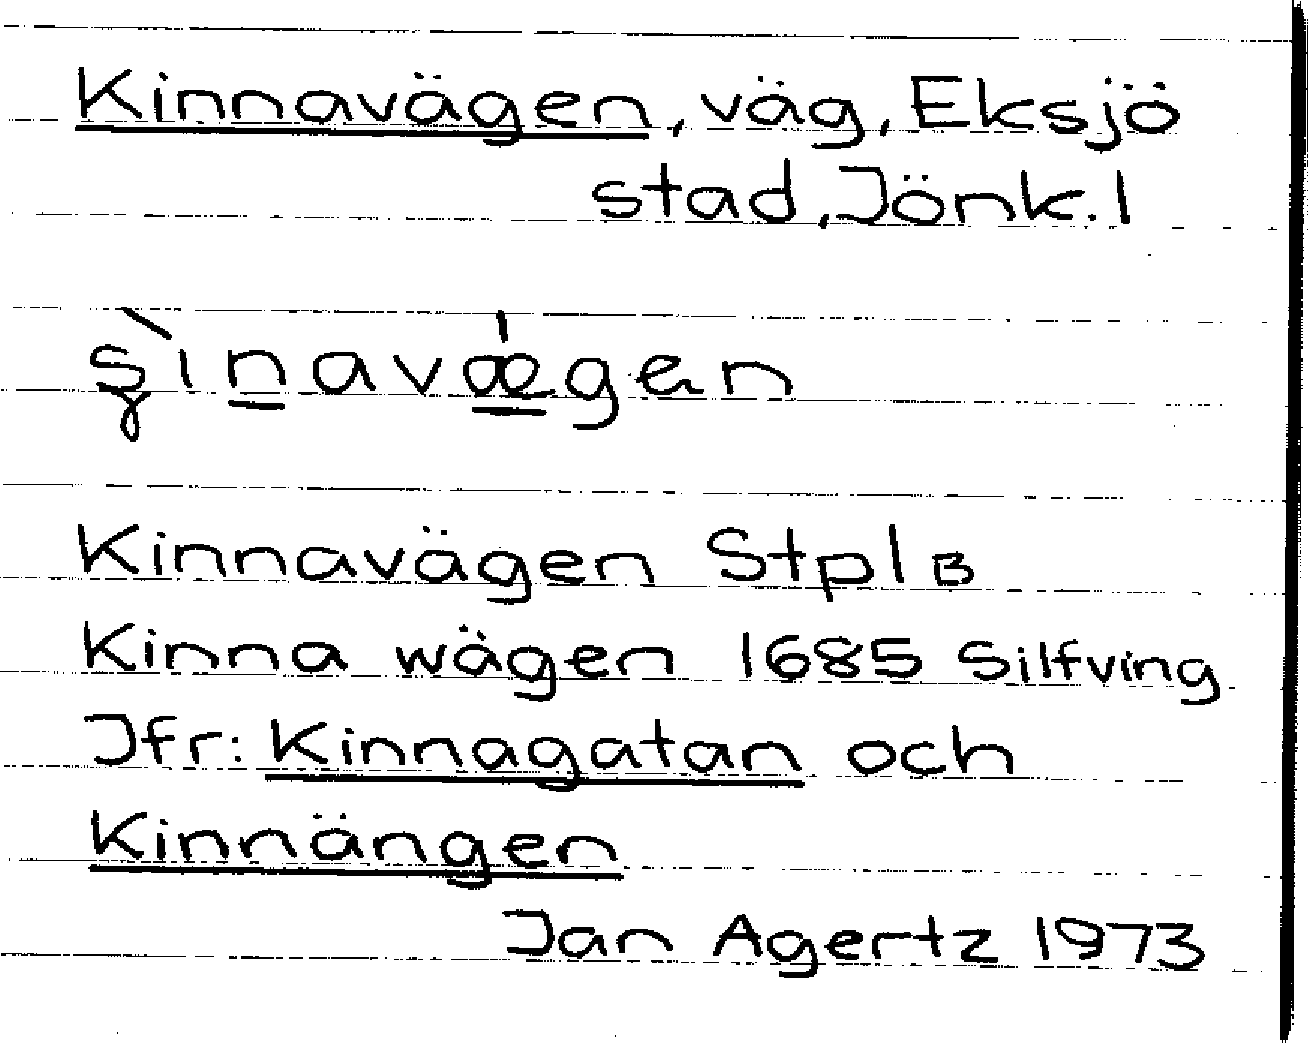 Kinnavägen, väg, Eksjö
stad, Jönk. l
Kinnavägen Stpl B
Kinna wägen 1685 Silfving
Jfr: Kinnagatan och
Kinnängen
Jan Agertz 1973